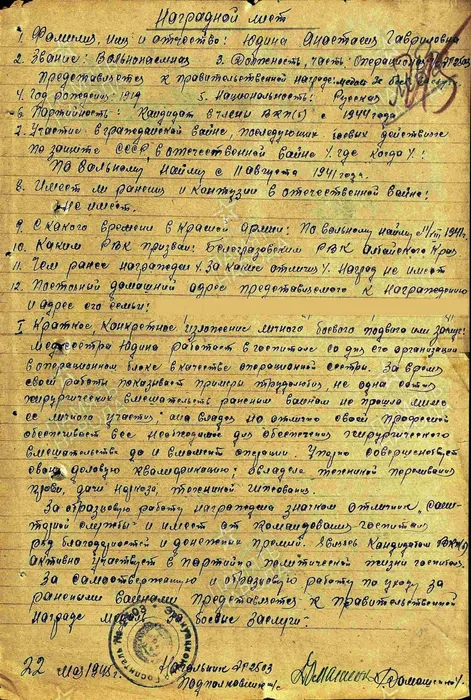 Наградной лист
1. Фамилия, имя и отчество: Юдина Анастасия Гавриловна
2. Звание: Вольнонаемная 3. Должность, часть: Операцион
Представляется к правительственной награде: медали За боевые
4. Год рождения 1919 5. Национальность: Русская
6. Партийность: Кандидат в члены ВКП(б) с 1944 года
7. Участие в гражданской войне, последующих боевых действиях
по защите СССР, в отечественной войне /. где когда /. :
По вольному найму с 11 августа 1941 года.
8. Имеет ли ранения и контузии в отечественной войне:
Не имеет.
9. С какого времени в Красной Армии: По вольному найму 11/VIII 1941г.
10. Каким РВК призван: Белоглазовским РВК Алтайского Края
11. Чем ранее награжден /. за какие отличия /. Наград не имеет
12. Постоянный домашний адрес представляемого к награждению
и адрес его семьи:
I Краткое, конкретное изложение личного боевого подвига или заслуг
Медсестра Юдина работает в госпитале со дня его организации
в операционном блоке в качестве операционной сестры. За время
своей работы показывает примеры трудолюбия, не одна сотня
хирургических вмешательств раненым воинам не прошла мимо
ее личного участия, она владея на отлично своей профессией
обеспечивает все необходимое для обеспечения хирургического
вмешательства до и в момент операции. Упорно совершенствует
свою деловую квалификацию; овладела техникой переливания
крови, дачи наркоза, техникой гипсования.
За образцовую работу награждена знаком отличник, сани-
тарной службы и имеет от командования госпиталя
ряд благодарностей и денежных премий. Являясь Кандидатом ВКП(б)
активно участвует в партийно политической жизни госпиталя.
За самоотверженную и образцовую работу по уходу за
ранеными воинами представляется к правительственной
награде медаль боевые заслуги.
22 мая 1945 г. Начальник ЭГ 2503
Подполковник м/с Домашенко